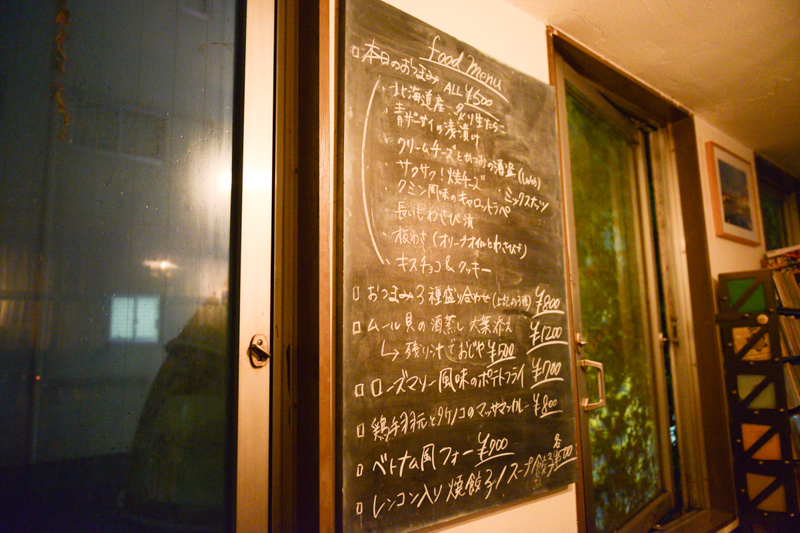 food menu
本日のおつまみ ALL ¥500
・北海道産 炙り生たらこ
・青ザーサイの浅漬け
・クリームチーズとかつおの酒盗
・サクサク!焼チーズ ・ミックスナッツ
・クミン風味のキャロットラペ
・長いもわさび漬
・板わさ(オリーブオイルとわさび)
・キスチョコ&クッキー
おつまみ3種盛り合わせ(上記のうち) ¥800
ムール貝の酒蒸し 大葉添え ¥1200
↳残り汁でおじや ¥500
ローズマリー風味のポテトフライ ¥700
鶏手羽元とタケノコのマッサマンカレー ¥800
ベトナム風フォー ¥700
レンコン入り 焼餃子/スープ餃子 各¥500